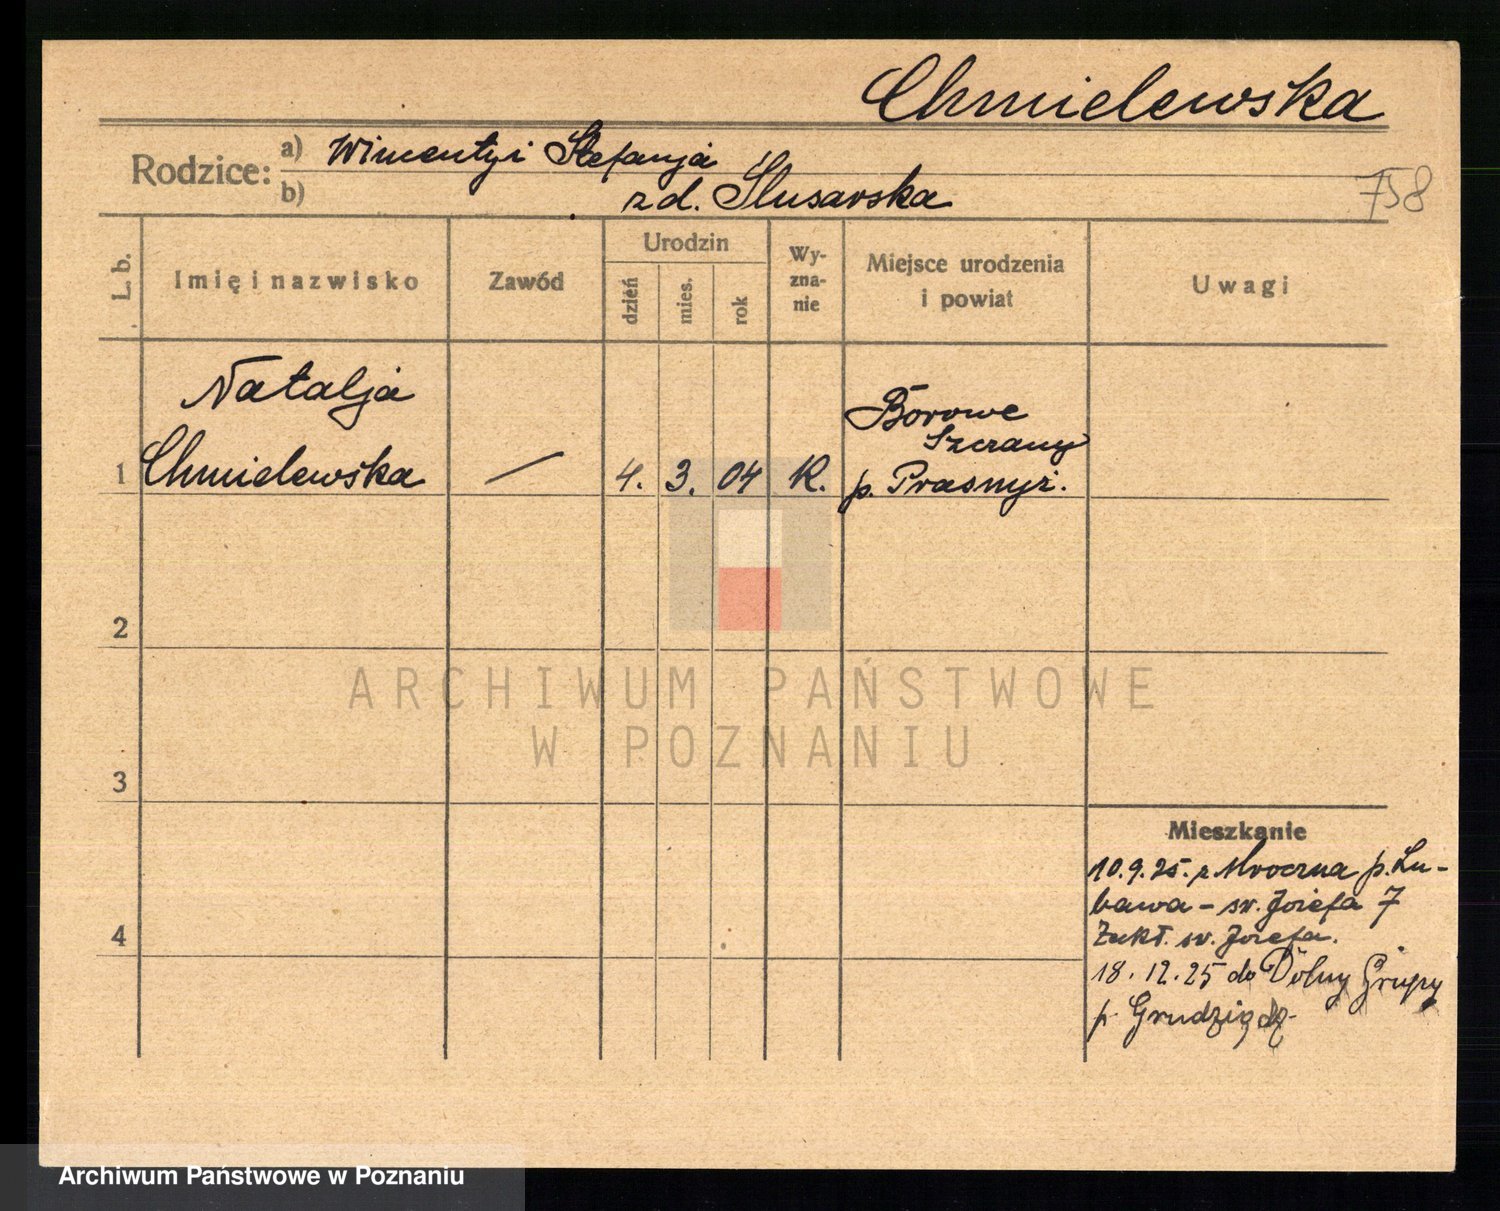 Chmielewska
Rodzice: a) Wincenty i Stefanja
b) zd. Ślusarska
758
L. b. Imię i nazwisko Zawód Urodzin dzień mies. rok Wyznanie Miejsce urodzenia i powiat Uwagi
Natalja
Borowe
Szczany
1 Chmielewska — 4. 3. 04 K. p. Prasnyż.
2
3
4
Mieszkanie
10.9.25. z Mroczna p. Lu-
bawa – św. Józefa 7
Zakł. św. Józefa.
18.12.25 do Dolny Grupy
p. Grudziądz.
ARCHIWUM PAŃSTWOWE
W POZNANIU
Archiwum Państwowe w Poznaniu